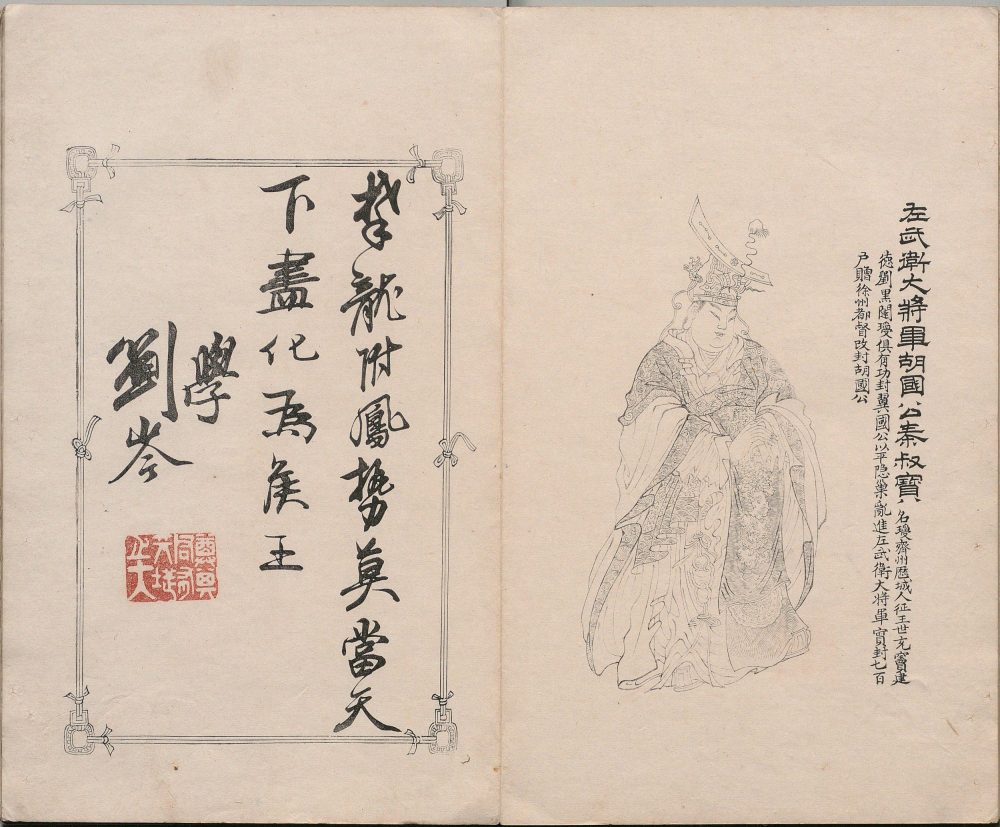 左武衛大將軍胡國公秦叔寶 名瓊齊州歷城人征王世充竇建
德劉黑闥瓊俱有功封翼國公以平隐巢亂進左武衛大將軍實封七百
戶贈徐州都督改封胡國公
攀龍附鳳勢莫當天
下盡化為侯王
學
劉岑